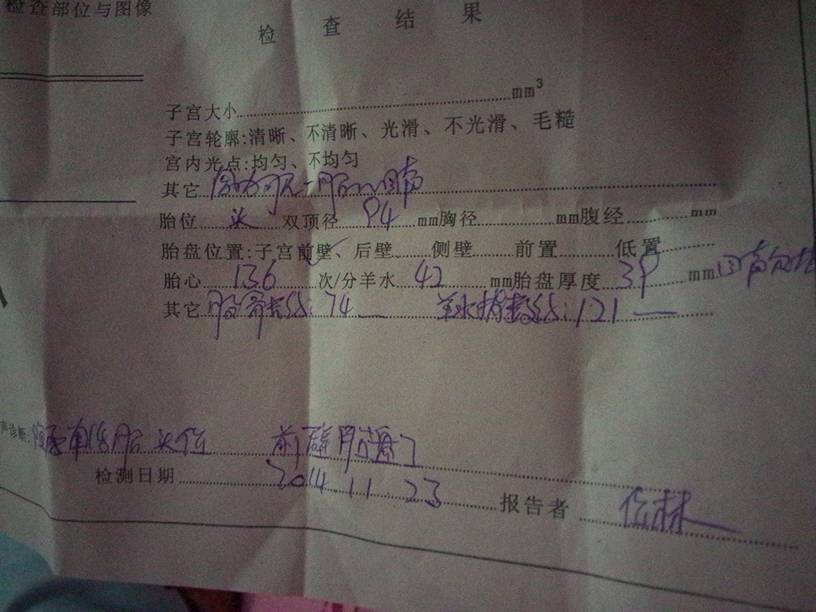 检查部位与图像
检查结果
子宫大小 mm³
子宫轮廓:清晰、不清晰、光滑、不光滑、毛糙
宫内光点:均匀、不均匀
其它
胎位 头 双顶径 94 mm胸径 mm腹经 mm
胎盘位置:子宫前壁✓、后壁 侧壁 前置 低置
胎心 136 次/分羊水 42 mm胎盘厚度 39 mm
其它 股骨长约:74 羊水指数约:121
声诊断: 头位 前壁胎盘
检测日期 2014.11.23 报告者